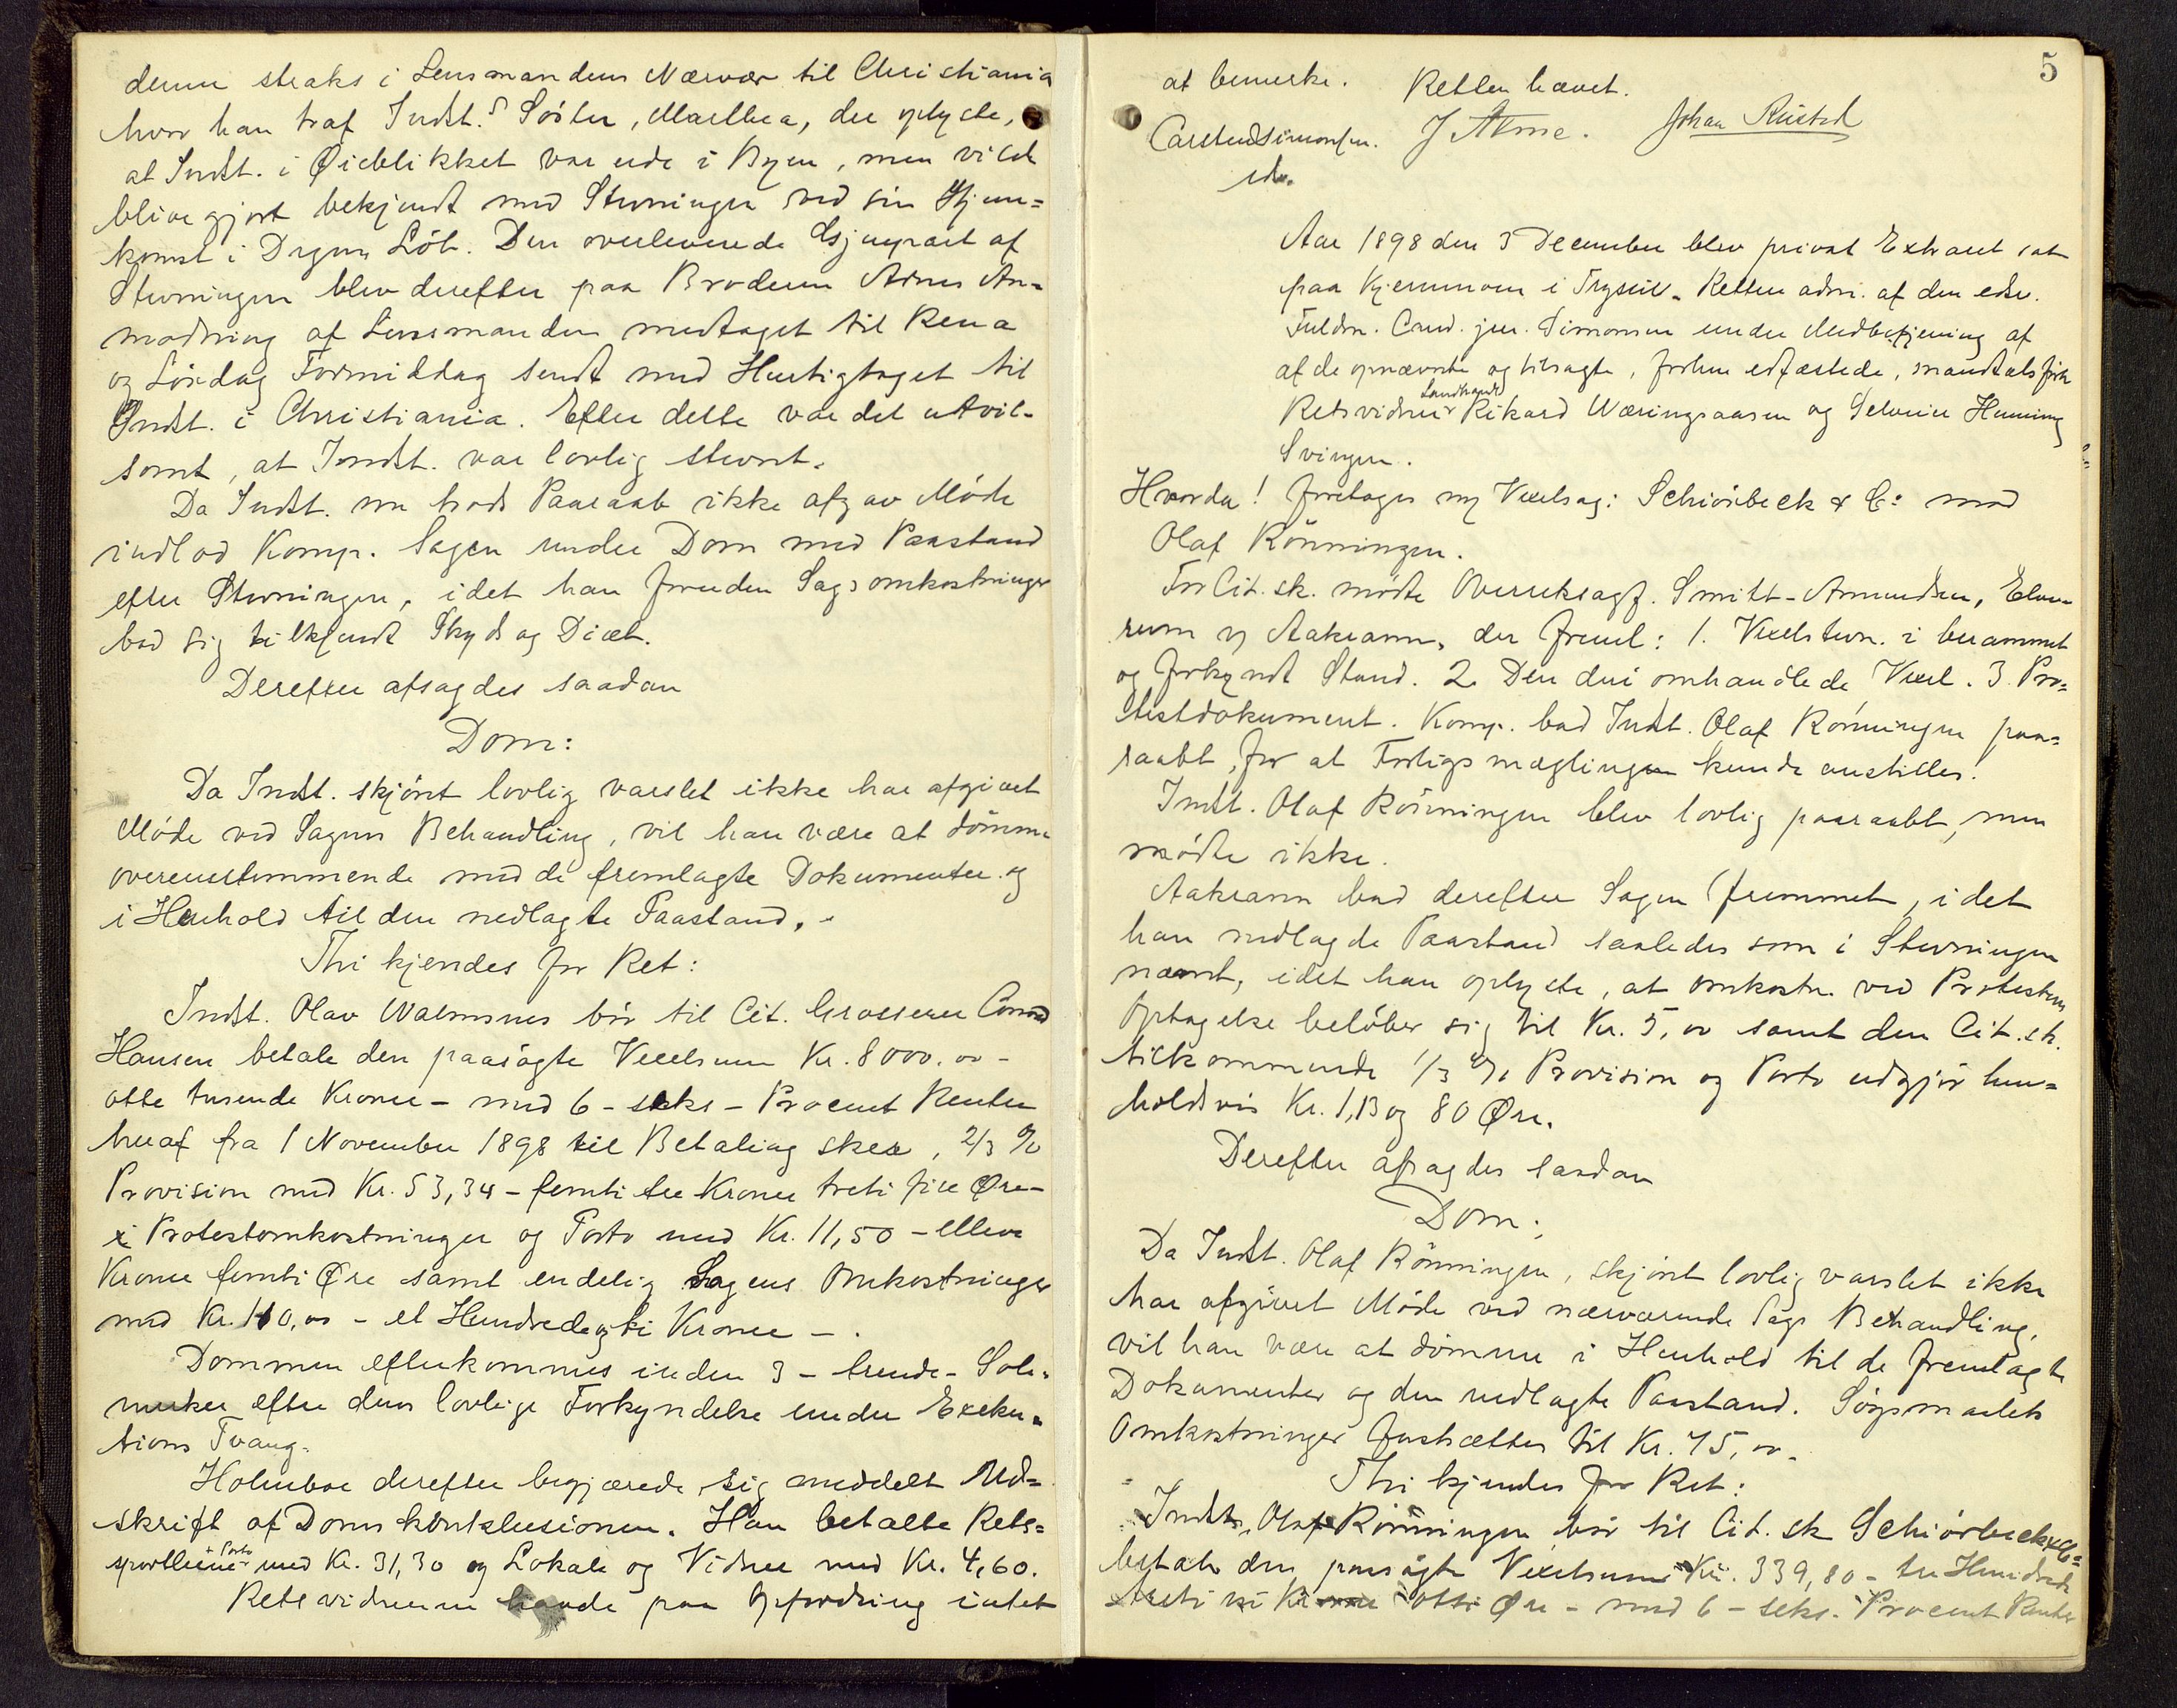 denne straks i Lensmandens Nærvær til Christiania
hvor han traf Indst.s Søster, Marthea, der oplyste,
at Indst. i Øieblikket var ude i Byen, men vilde
blive gjort bekjendt med Stevningen ved sin Hjem=
komst i Dagens Løb. Den overleverede Gjenpart af
Stevningen blev derefter paa Broderen Arnes An=
modning af Lensmanden medtaget til Rena
og Lørdag Formiddag sendt med Hurtigtoget til
Indst. i Christiania. Efter dette var det utvil-
somt, at Indst. var lovlig stevnt.
Da Indst. nu trods Paaraab ikke afgav Møde
indlod Komp. Sagen under Dom med Paastand
efter Stevningen, idet han foruden Sagsomkostninger
bad sig tilkjendt Skyds og Diæt.
Derefter afsagdes saadan
Dom:
Da Indst. skjønt lovlig varslet ikke har afgivet
Møde ved Sagens Behandling, vil han være at dømme
overensstemmende med de fremlagte Dokumenter og
i Henhold til den nedlagte Paastand.
Thi kjendes for Ret:
Indst. Olav Walmsnes bør til Cit. Grosserer Conrad
Hansen betale den paasøgte Vexelsum Kr. 8000.00 -
otte tusende Kroner - med 6 - seks - Procent Renter
heraf fra 1 November 1898 til Betaling sker, 2/3 %
Provision med Kr. 53,34 - femti tre Kroner treti fire Øre -
i Protestomkostninger og Porto med Kr. 11,50 - elleve
Kroner femti Øre samt endelig Sagens Omkostninger
med Kr. 110,00 - et Hundrede og ti Kroner - .
Dommen efterkommes inden 3 - trende - Sole=
merker efter dens lovlige Forkyndelse under Exeku=
tions Tvang.
Holmboe derefter begjærede sig meddelt Ud=
skrift af Domskonklusionen. Han betalte Rets=
sportlerne + Porto med Kr. 31,30 og Lokale og Vidner med Kr. 4,60.
Retsvidnerne havde paa Opfordring intet
5
at bemerke. Retten hævet.
Carsten Simonsen. J Atme. Johan Rustad
edv.
Aar 1898 den 3 December blev privat Extraret sat
paa Kjernmoen i Trysil. Retten adm. af den edsv.
Fuldm. Cand. jur. Simonsen under Medbetjening af
af de opnævnte og tilsagte, forhen edfæstede, mandtalsførte
Retsvidner Landhandl. Rikard Wæringsaasen og Selveier Henning
Svingen.
Hvorda! foretoges ny Vexelsag: Schiørbeck & Co mod
Olaf Rønningen.
For Cit. sk. mødte Overretssagf. Smitt-Amundsen, Elve-
rum v/ Aakrann, der freml: 1. Vexelstevn. i berammet
og forkyndt Stand. 2. Den deri omhandlede Vexel. 3. Pro=
testdokument. Komp. bad Indst. Olaf Rønningen paa=
raabt, for at Forligsmæglingen kunde anstilles.
Indst. Olaf Rønningen blev lovlig paaraabt, men
mødte ikke.
Aakrann bad derefter Sagen fremmet, idet
han nedlagde Paastand saaledes som i Stevningen
nævnt, idet han oplyste, at omkostn. ved Protestens
Optagelse beløber sig til Kr. 5,00 samt den Cit. sk.
tilkommende 1/3 % Provision og Porto udgjør hen=
holdsvis Kr. 1,13 og 80 Øre.
Derefter afsagdes saadan
Dom:
Da Indst. Olaf Rønningen, skjønt lovlig varslet ikke
har afgivet Møde ved nærværende Sags Behandling,
vil han være at dømme i Henhold til de fremlagte
Dokumenter og den nedlagte Paastand. Søgsmaalets
Omkostninger fastsættes til Kr. 75,00.
Thi kjendes for Ret:
Indst. Olaf Rønningen bør til Cit. sk Schiørbeck & Co
betale den paasøgte Vexelsum Kr. 339,80 - tre Hundrede
treti ni Kroner otti Øre - med 6 - seks - Procent Renter